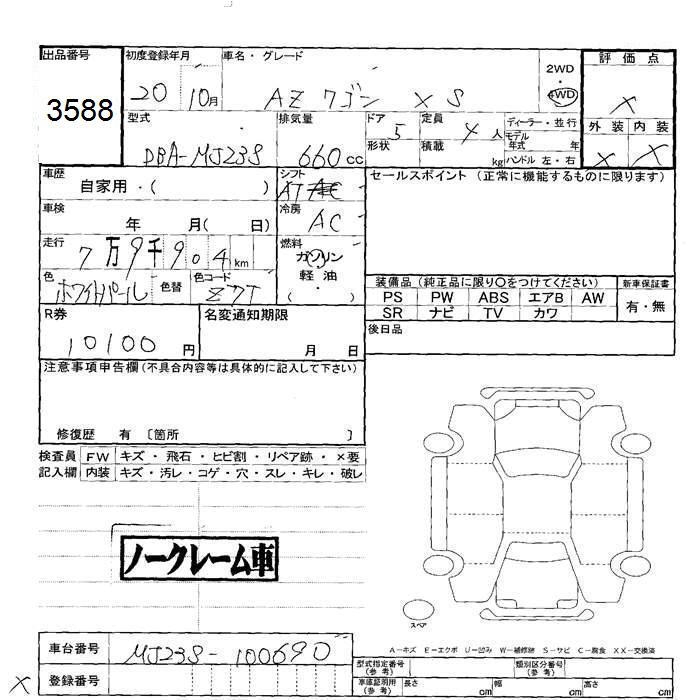 出品番号
3588
初度登録年月
20 10月
車名・グレード
AZ ワゴン XS
2WD
・
4WD
評価点
×
外装 内装
× ×
型式
DBA-MJ23S
排気量
660 cc
ドア 5
形状
定員 4 人
積載 kg
ディーラー・並行
モデル
年式 年
ハンドル 左・右
車歴
自家用・( )
シフト
AT
車検
年 月( 日)
冷房
AC
走行
7万9千904km
燃料
ガソリン
軽油
( ・ )
色
ホワイトパール
色替
色コード
Z7T
R券
10100 円
名変通知期限
月 日
セールスポイント (正常に機能するものに限ります)
装備品 (純正品に限り○をつけてください)
新車保証書
PS PW ABS エアB AW
SR ナビ TV カワ
有・無
後日品
注意事項申告欄(不具合内容等は具体的に記入して下さい)
修復歴 有 〔箇所 〕
検査員 FW キズ・飛石・ヒビ割・リペア跡・×要
記入欄 内装 キズ・汚レ・コゲ・穴・スレ・キレ・破レ
ノークレーム車
スペア
A-キズ E-エクボ U-凹み W-補修跡 S-サビ C-腐食 XX-交換済
車台番号
MJ23S-100690
登録番号
×
型式指定番号
(参考)
類別区分番号
(参考)
車庫証明用
(参考)
長さ cm 幅 cm 高さ cm